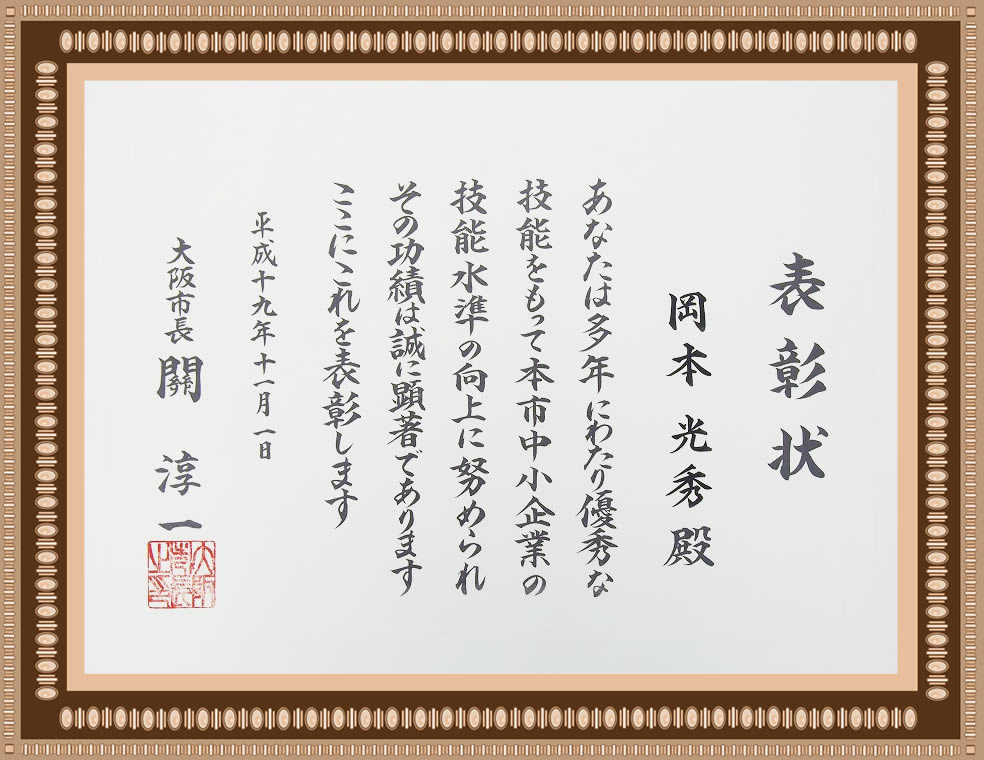 表彰状
岡本光秀殿
あなたは多年にわたり優秀な
技能をもって本市中小企業の
技能水準の向上に努められ
その功績は誠に顕著であります
ここにこれを表彰します
平成十九年十一月一日
大阪市長 關 淳一